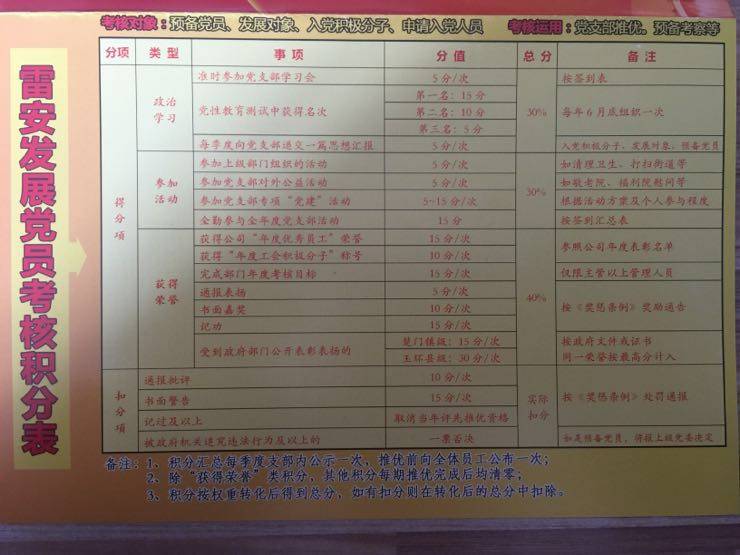 考核对象：预备党员、发展对象、入党积极分子、申请入党人员 考核运用：党支部推优、预备考察等
雷安发展党员考核积分表
分项 类型 事项 分值 总分 备注
得分项
政治学习
准时参加党支部学习会 5分/次 按签到表
党性教育测试中获得名次 第一名：15分 30% 每年6月底组织一次
第二名：10分
第三名：5分
每季度向党支部递交一篇思想汇报 5分/次 入党积极分子、发展对象、预备党员
参加活动
参加上级部门组织的活动 5分/次 30% 如清理卫生、打扫街道等
参加党支部对外公益活动 5分/次 如敬老院、福利院慰问等
参加党支部专项“党建”活动 5~15分/次 根据活动方案及个人参与程度
全勤参与全年度党支部活动 15分 按签到汇总表
获得荣誉
获得公司“年度优秀员工”荣誉 15分/次 40% 参照公司年度表彰名单
获得“年度工会积极分子”称号 10分/次
完成部门年度考核目标 15分/次 仅限主管以上管理人员
通报表扬 5分/次 按《奖惩条例》奖励通告
书面嘉奖 10分/次
记功 15分/次
受到政府部门公开表彰表扬的 楚门镇级：15分/次 按政府文件或证书
玉环县级：30分/次 同一荣誉按最高分计入
扣分项
通报批评 10分/次 实际扣分 按《奖惩条例》处罚通报
书面警告 15分/次
记过及以上 取消当年评先推优资格
被政府机关追究违法行为及以上的 一票否决 如是预备党员，将报上级党委决定
备注：1、积分汇总每季度支部内公示一次，推优前向全体员工公布一次；
2、除“获得荣誉”类积分，其他积分每期推优完成后均清零；
3、积分按权重转化后得到总分，如有扣分则在转化后的总分中扣除。